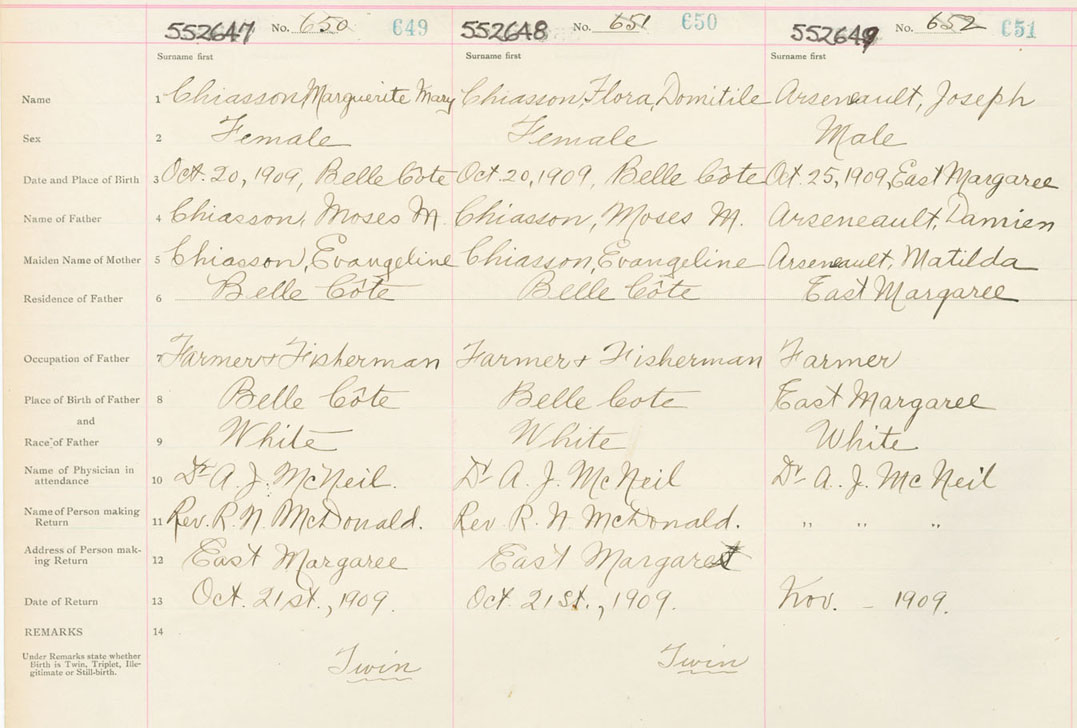 552647 No. 650 649 552648 No. 651 650 552649 No. 652 651
Surname first Surname first Surname first
Name 1 Chiasson, Marguerite Mary Chiasson, Flora, Domitile Arseneault, Joseph
Sex 2 Female Female Male
Date and Place of Birth 3 Oct. 20, 1909, Belle Côte Oct. 20, 1909, Belle Côte Oct. 25, 1909, East Margaree
Name of Father 4 Chiasson, Moses M. Chiasson, Moses M. Arseneault, Damien
Maiden Name of Mother 5 Chiasson, Evangeline Chiasson, Evangeline Arseneault, Matilda
Residence of Father 6 Belle Côte Belle Côte East Margaree
Occupation of Father 7 Farmer + Fisherman Farmer + Fisherman Farmer
Place of Birth of Father 8 Belle Côte Belle Cote East Margaree
and
Race of Father 9 White White White
Name of Physician in
attendance 10 Dr A. J. McNeil. Dr A. J. McNeil Dr A. J. McNeil
Name of Person making
Return 11 Rev. R. N. McDonald. Rev. R. N. McDonald. " " "
Address of Person mak-
ing Return 12 East Margaree East Margaree
Date of Return 13 Oct. 21st., 1909. Oct. 21st., 1909. Nov. – 1909.
REMARKS 14
Under Remarks state whether
Birth is Twin, Triplet, Ille-
gitimate or Still-birth.
Twin Twin